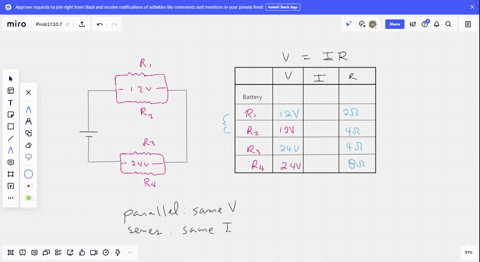 Approve requests to join right from Slack and receive notifications of activities like comments and mentions in your private feed! Install Slack App
miro Prob17.10.7 Share
V = IR
R1
12V
R2
R3
24V
R4
V I R
Battery
R1 12V 2Ω
R2 12V 4Ω
R3 24V 4Ω
R4 24V 8Ω
parallel: same V
series: same I